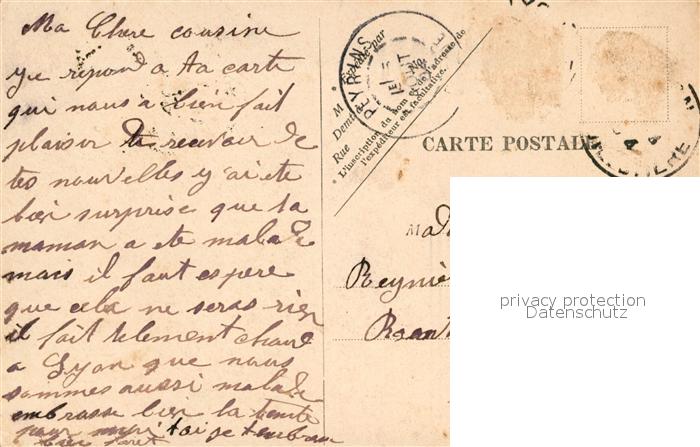 Ma Chere cousine
ye repond a ta carte
qui nous a bien fait
plaisir de recevoir de
tes nouvelles y'ai ete
bien surprise que ta
maman a ete malade
mais il faut espere
que cela ne seras rien
il fait telement chaud
a Lyon que nous
sommes aussi malade
embrasse bien la tente
pour moi toi je t'embrasse
bien fort
PEYRINS
M
Demt
Rue
L'inscription du nom et de l'adresse de
l'expéditeur est facultative.
CARTE POSTALE
Mad
Reyniè
privacy protection
Datenschutz